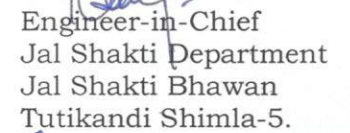 Engineer-in-Chief
Jal Shakti Department
Jal Shakti Bhawan
Tutikandi Shimla-5.